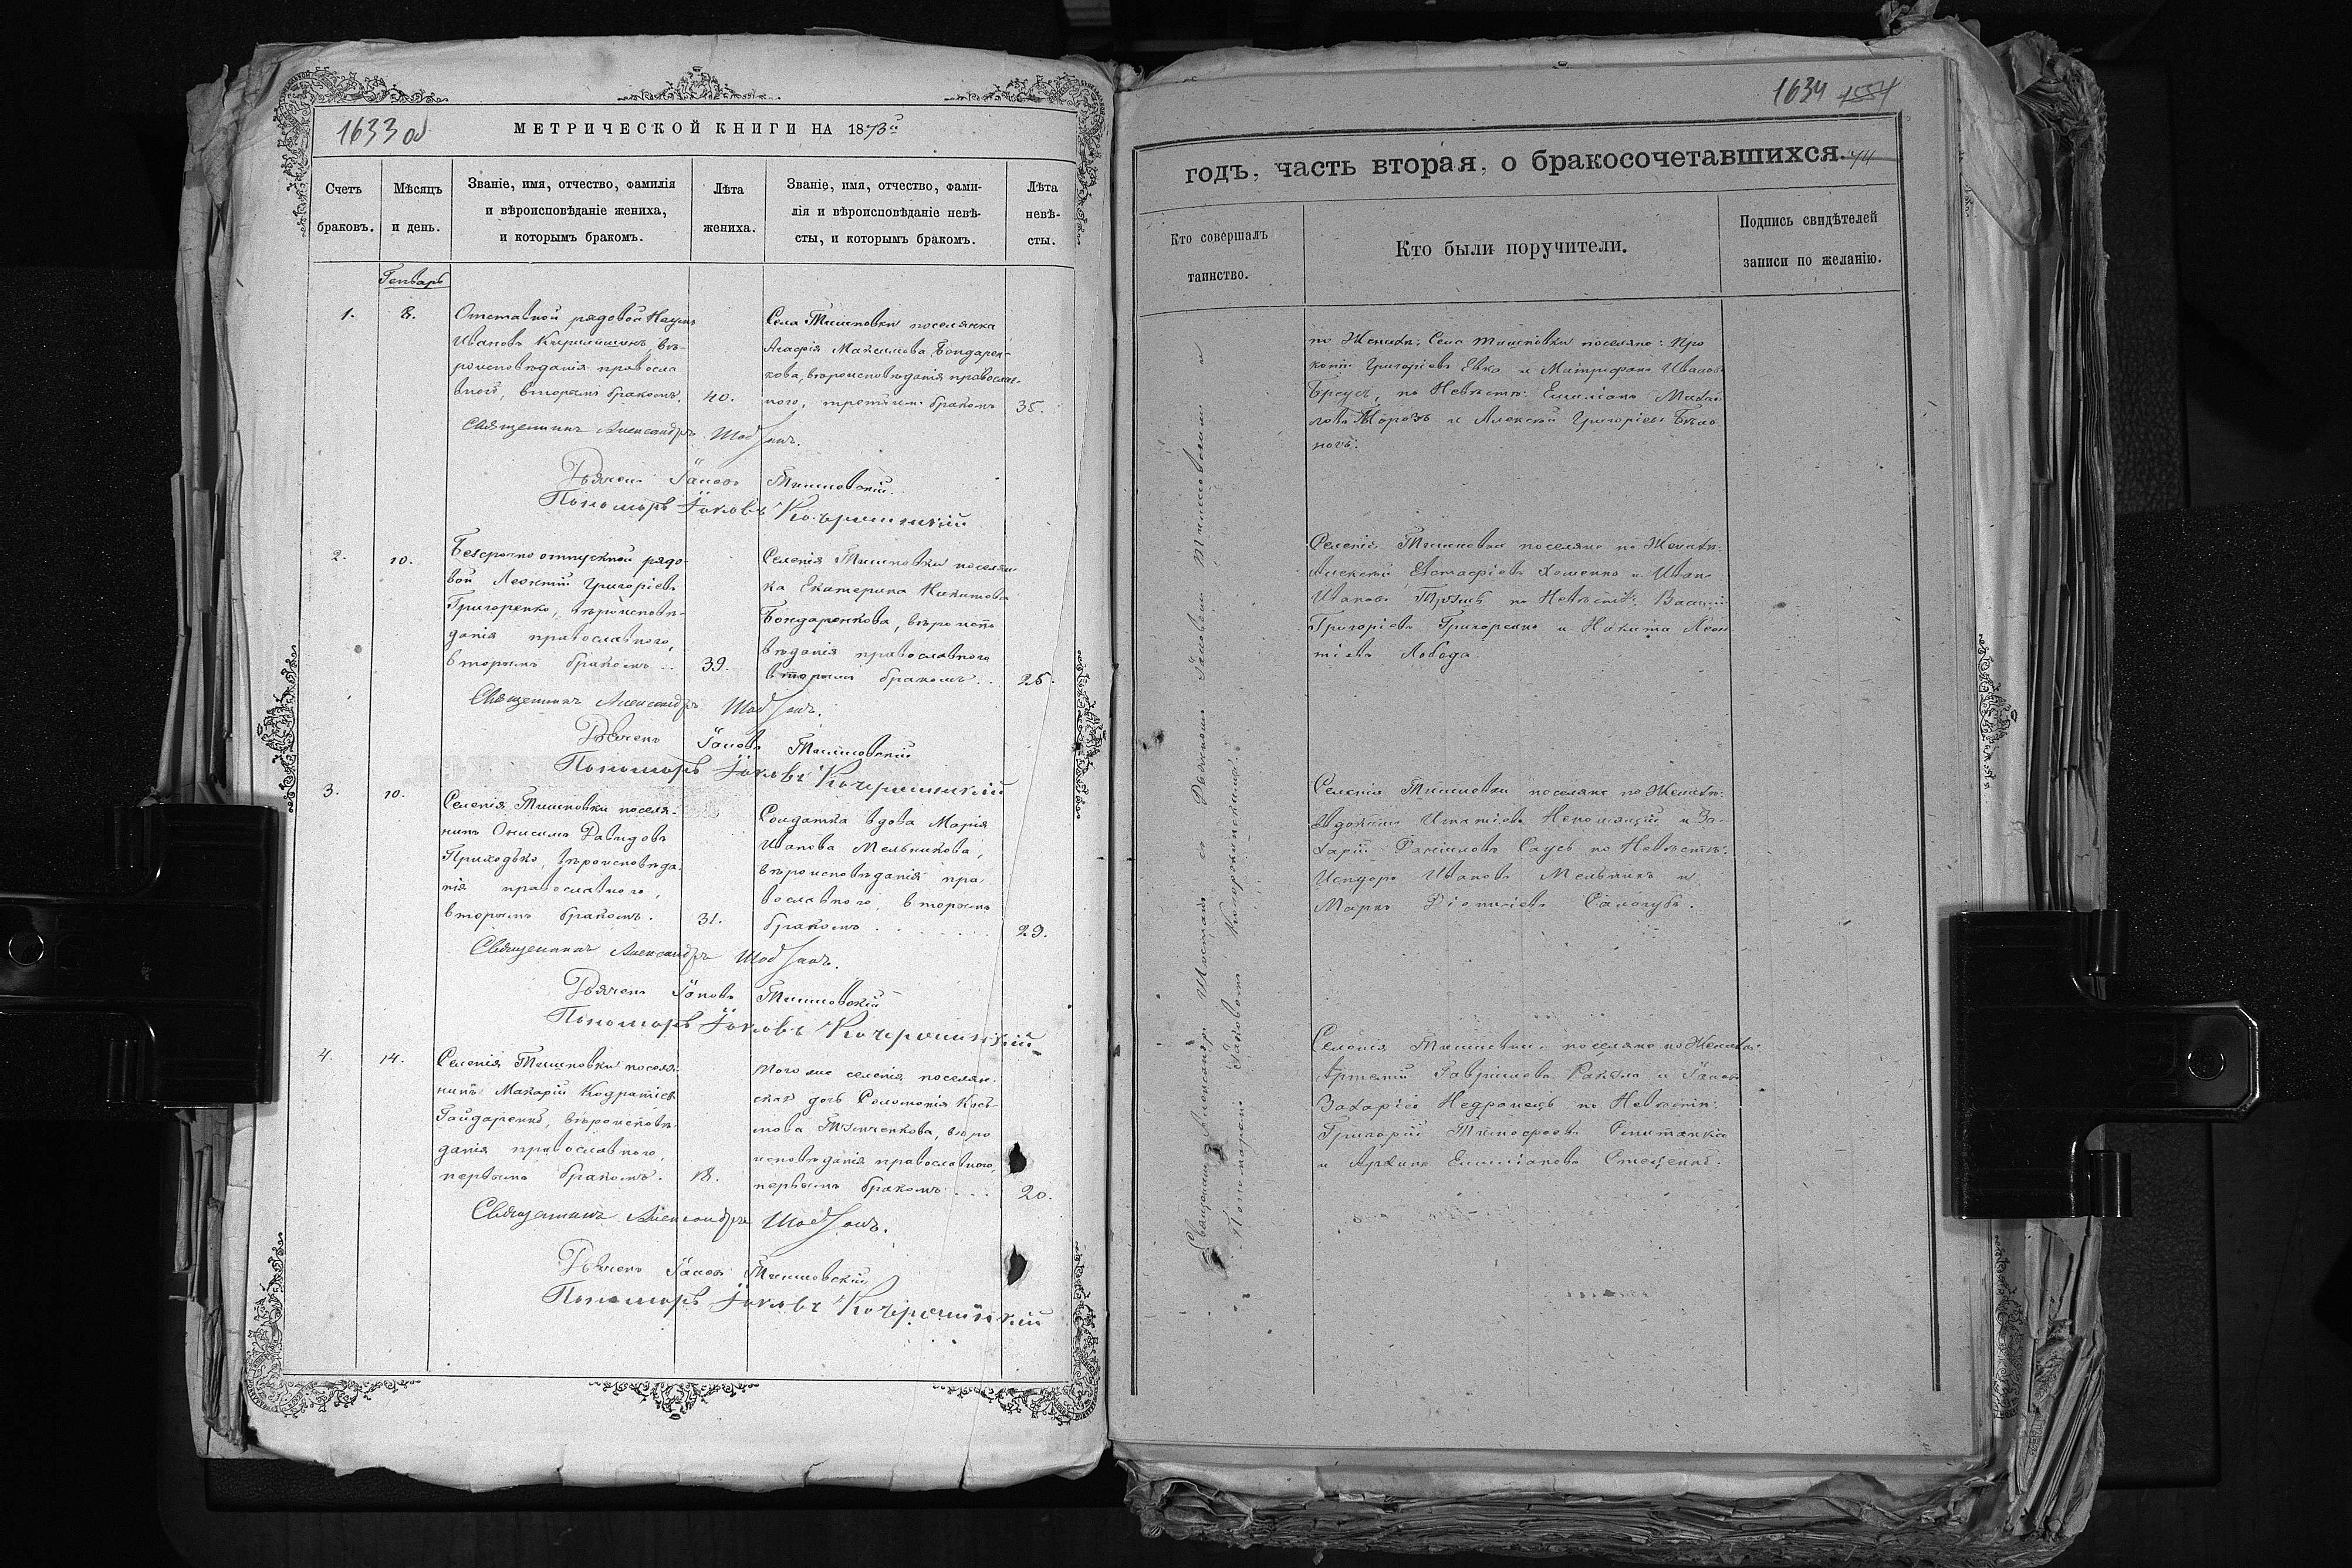 1633 об
МЕТРИЧЕСКОЙ КНИГИ НА 1873й
Счетъ браковъ.
Мѣсяцъ и день.
Званіе, имя, отчество, фамилія
и вѣроисповѣданіе жениха,
и которымъ бракомъ.
Лѣта жениха.
Званіе, имя, отчество, фами-
лія и вѣроисповѣданіе невѣ-
сты, и которымъ бракомъ.
Лѣта невѣ-
сты.
Генварь
1.
8.
Отставной рядовой Наумъ
Ивановъ вѣ-
роисповѣданія правосла
внаго, вторымъ бракомъ.
40.
Села Тишковки поселянка
Агафія Максимова Бондарен-
кова, вѣроисповѣданія православ-
ного, третьимъ бракомъ
35.
Священникъ Александръ
Дьячекъ Іаковъ Тишковскій.
Пономарь Іаковъ
2.
10.
Безсрочно отпускной рядо-
вой Леонтій Григоріевъ
Григоренко, вѣроисповѣ-
данія православного,
вторымъ бракомъ..
39.
Селенія Тишковки поселян-
ка Екатерина Никитова
Бондаренкова, вѣроиспо
вѣданія православного
вторымъ бракомъ..
25.
Священникъ Александръ
Дьячекъ Іаковъ Тишковскій
Пономарь Іаковъ
3.
10.
Селенія Тишковки поселя-
нинъ Онисимъ Давидовъ
Приходько, вѣроисповѣда-
нія православного,
вторымъ бракомъ.
31.
Солдатка вдова Марія
Иванова Мельникова,
вѣроисповѣданія пра-
вославного, вторымъ
бракомъ
29.
Священникъ Александръ
Дьячекъ Іаковъ Тишковскій
Пономарь Іаковъ
4.
14.
Селенія Тишковки поселя-
нинъ Макарій Кодратіевъ
Гайдаренко, вѣроисповѣ-
данія православного,
первымъ бракомъ.
18.
Того же селенія поселян-
ская дочь Соломонія Кось-
мова вѣро
исповѣданія православного,
первымъ бракомъ...
20.
Священникъ Александръ
Дьячекъ Іаковъ Тишковскій
Пономарь Іаковъ
1634 1554
годъ, часть вторая, о бракосочетавшихся.
44
Кто совершалъ
таинство.
Кто были поручители.
Подпись свидѣтелей
записи по желанію.
Священникъ Александръ съ Дьячкомъ Іаковомъ Тишковскимъ и
Пономаремъ Іаковомъ
по Женихѣ: Села Тишковки поселяне: Про
копій Григоріевъ и Митрофанъ Ивановъ
Бреусъ, по Невѣстѣ: Емиліанъ
Морозъ и Алексій Григоріевъ Бѣло
ногъ.
Селенія Тишковки поселяне по Женихѣ:
Алексій Евстафіевъ Хоменко и Иванъ
Ивановъ по Невѣстѣ: Василій
Григоріевъ Григоренко и Никита Леон-
тіевъ Лобода.
Селенія Тишковки поселяне по Женихѣ:
Евдокимъ Игнатіевъ и За-
харій Даніиловъ Саусь по Невѣстѣ:
Исидоръ Ивановъ Мельникъ и
Маркъ Діонисіевъ
Селенія Тишковки поселяне по Женихѣ:
Артемій Гавріиловъ и Іаковъ
Захаріевъ по Невѣстѣ:
Григорій Тимофеевъ
и Архипъ Емиліановъ Стеценко.